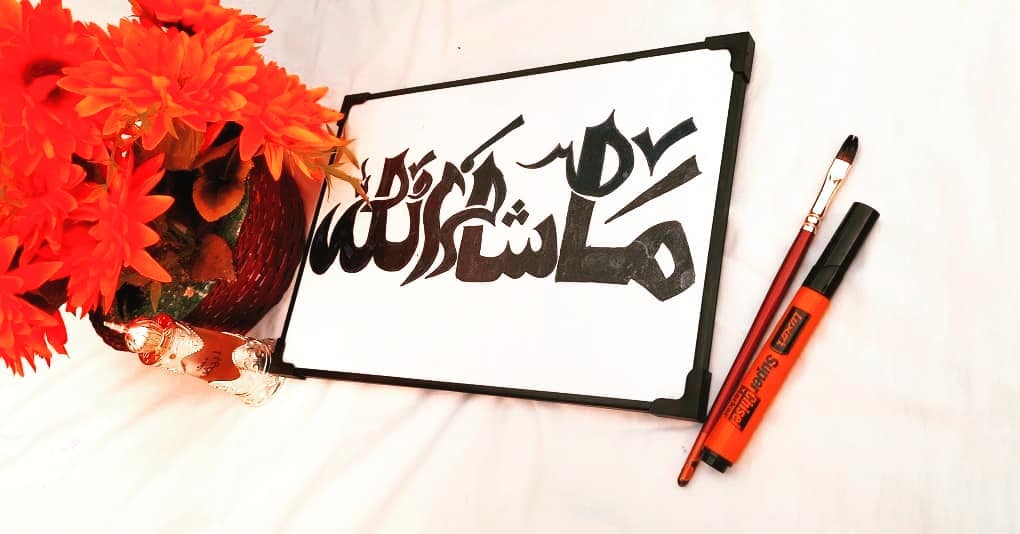 ما شاء الله
Luxor
SuperChisel